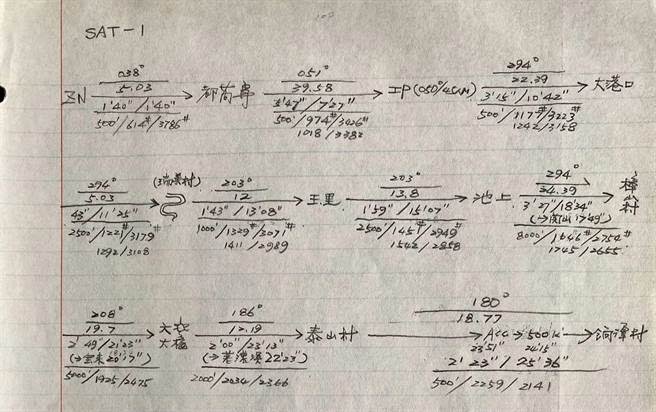 SAT-1
038° 051° 294°
5.03 39.58 22.39
ZN 都蘭鼻 IP (050°/45NM) 大港口
1'40"/1'40" 5'47"/7'27" 3'15"/10'42"
500'/614#/3786# 500'/974#/3426# 500'/1177#/3223#
1018/3382 1242/3158
294° (瑞美村) 203° 203° 294°
5.03 12 13.8 24.39
玉里 池上 樟山村
43"/11'25" 1'43"/13'08" 1'59"/15'07" 3'27"/18'34"
2500'/1221#/3179# 1000'/1329#/3071# 2500'/1451#/2949# (→関山17'49")
1292/3108 1411/2989 1542/2858 8000'/1646#/2754#
1745/2655
208° 186° 180°
19.7 12.19 18.77
泰山村 Acc → 560k
2'49"/21'23" 2'00"/23'13" 23'51" 24'15"
2'23"/25'36"
5000'/1925/2475 2000'/2034/2366 500'/2259/2141